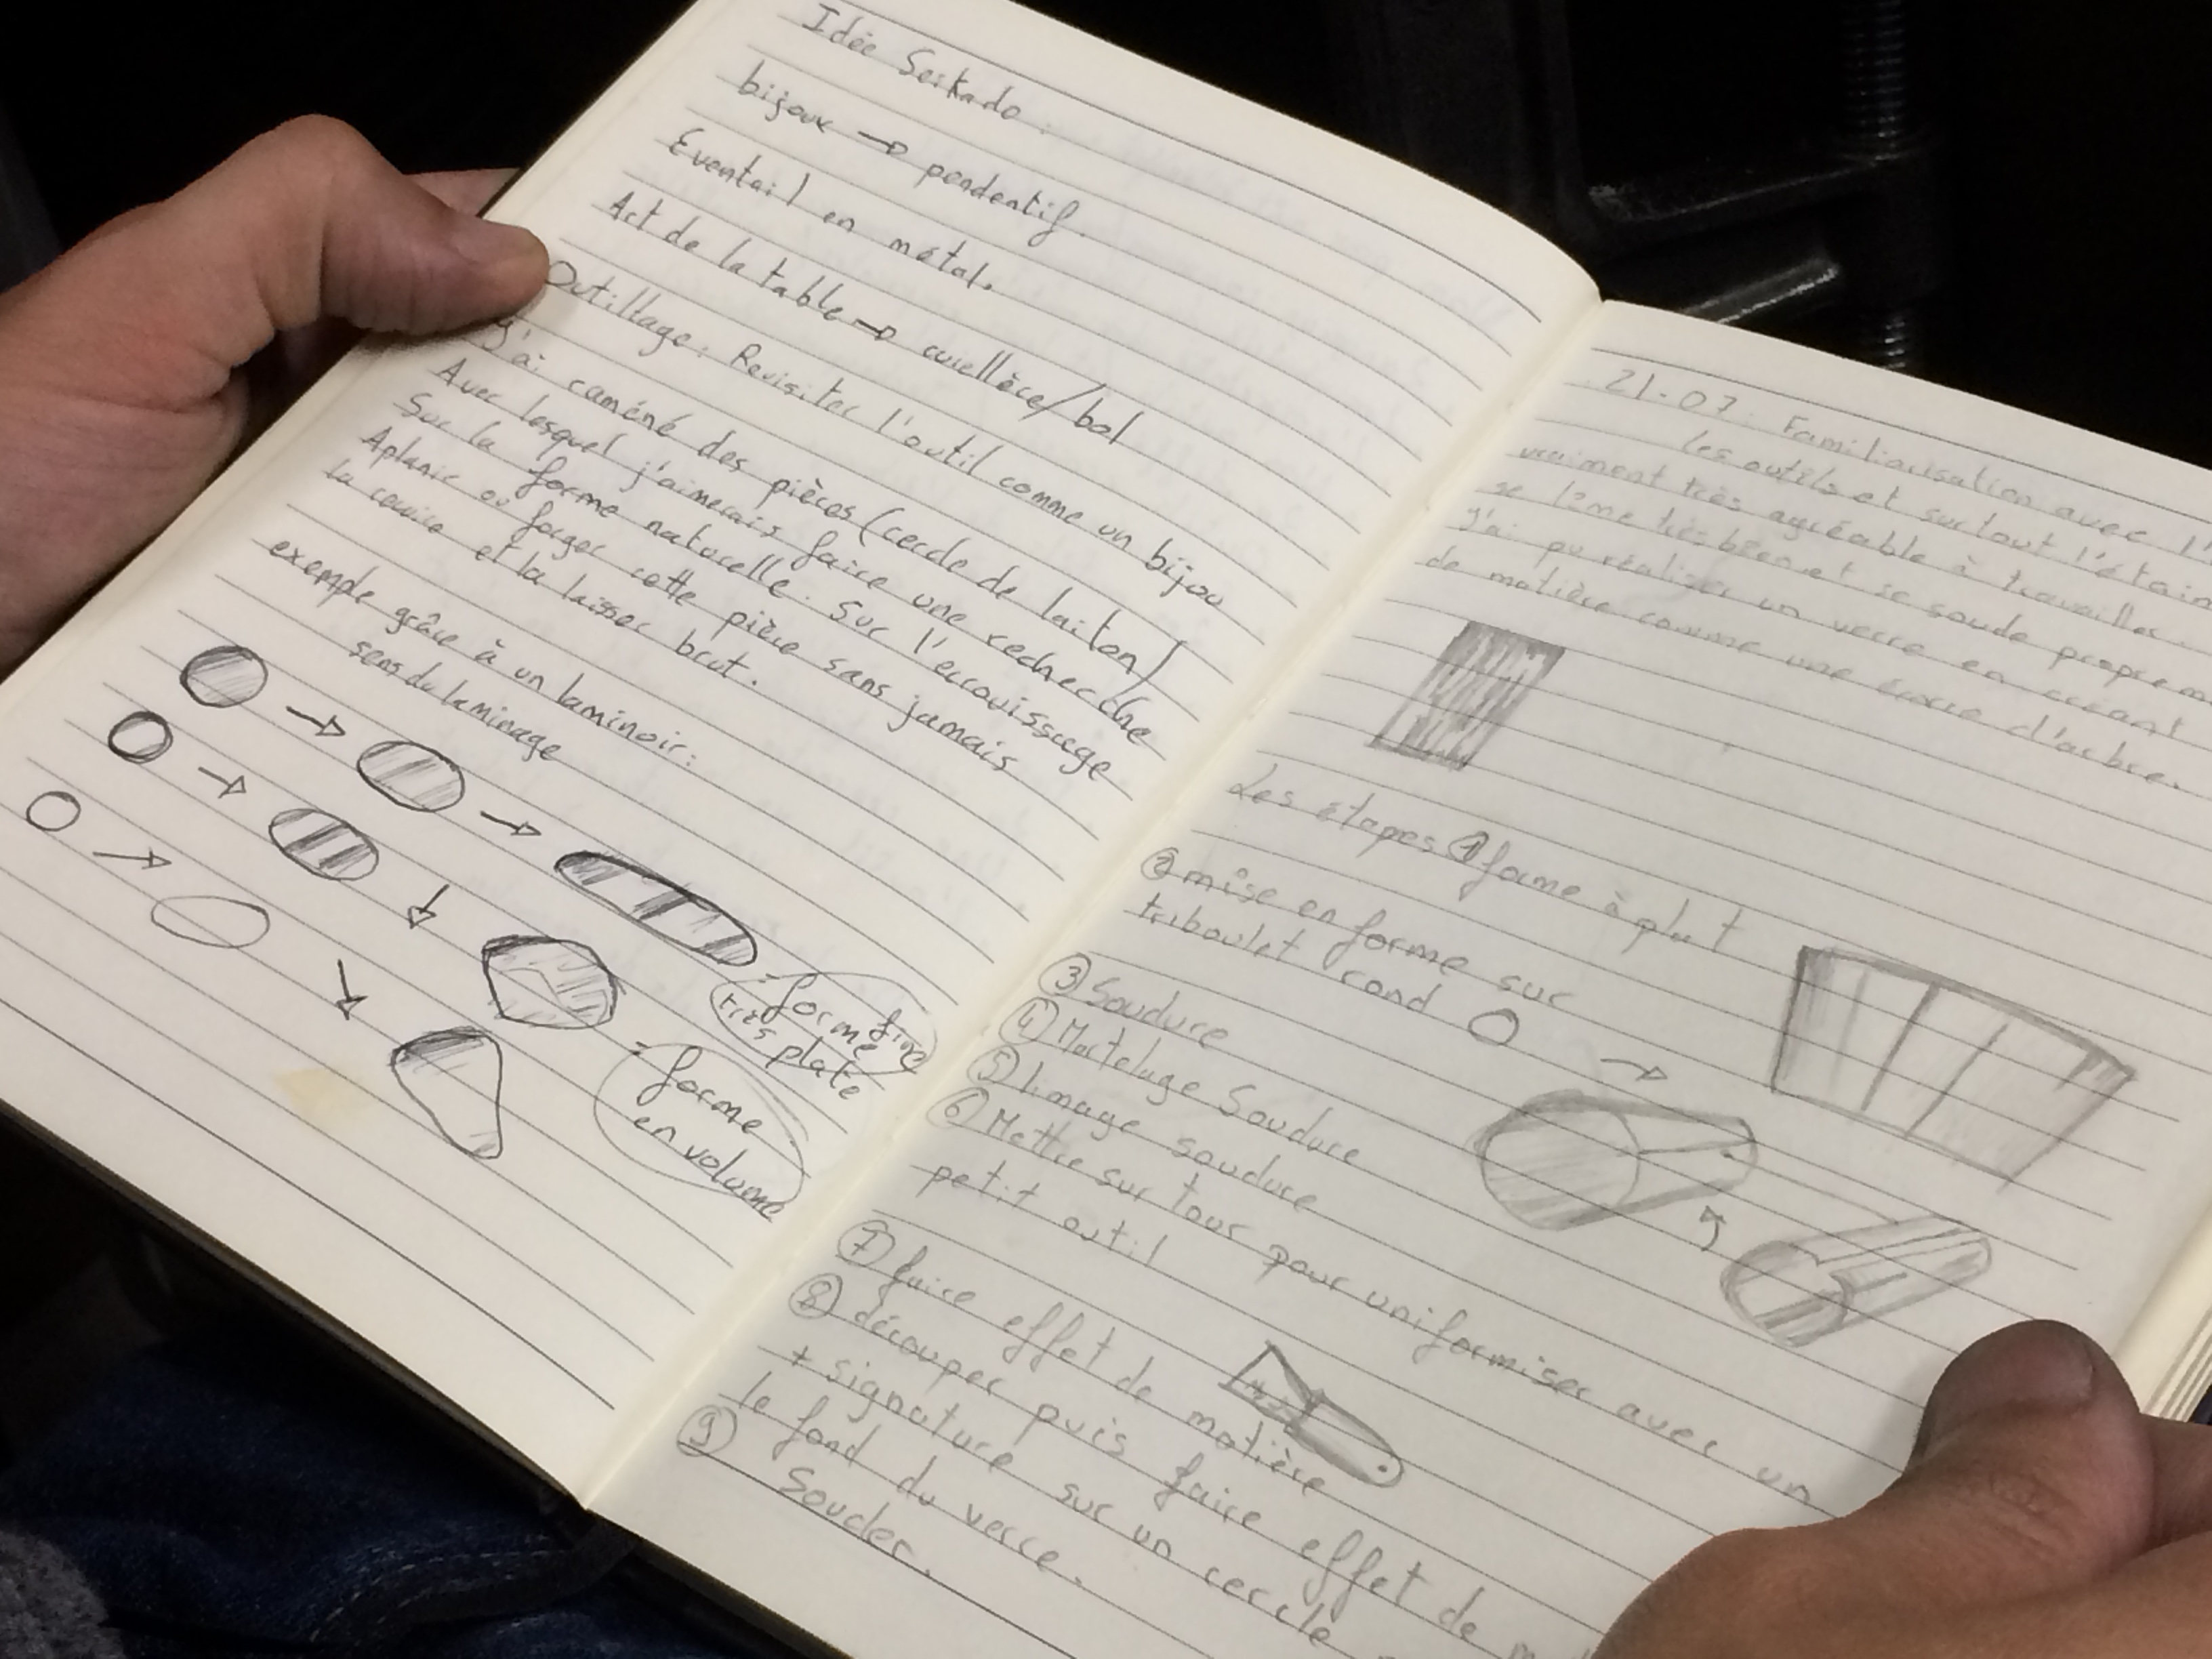 Idée Seikado :
bijoux → pendentif.
Eventail en métal.
Art de la table → cuellère/bol
Outillage : Revisiter l'outil comme un bijou
J'ai caméné des pièces (cercle de laiton)
Avec lesquel j'aimerais faire une recherche
Sur la forme naturelle. Sur l'ecrouissage
Aplanir ou forger cette pièce sans jamais
la recuire et la laisser brut.
exemple grâce à un laminoir :
sens du laminage
- forme fine
très plate
- forme
en volume
21-07 : Familiarisation avec
les outils et surtout l'étain
vraiment très agréable à travailler.
se lime très bien et se soude
J'ai pu réaliser un verre en créant
de matière comme une écorce d'arbre.
Les étapes ① forme à plat
② mise en forme sur
triboulet rond
③ Soudure
④ Martelage Soudure
⑤ limage soudure
⑥ Mettre sur tour pour uniformiser avec un
petit outil
⑦ faire effet de matière
⑧ découper puis faire effet de
+ signature sur un cercle
le fond du verre.
⑨ Souder.